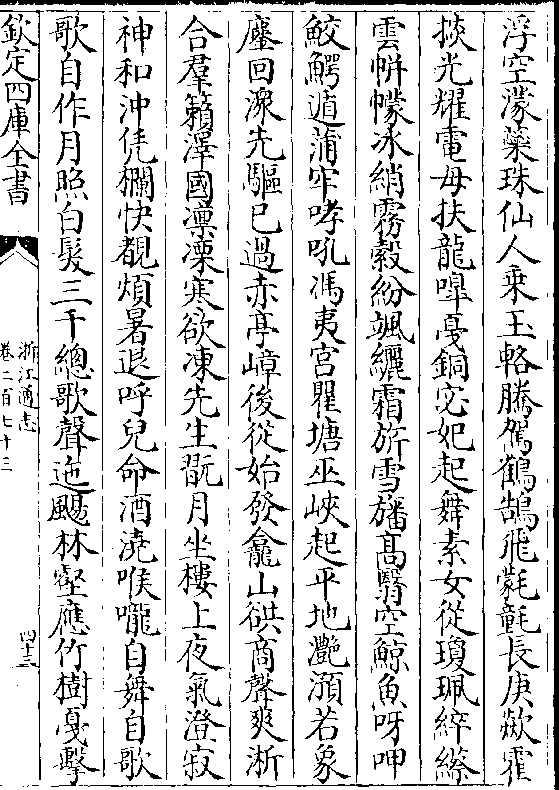 浮空濛蘂珠仙人乗玉輅騰駕鶴鵠飛氋氃長庚歘霍
掞光耀電母扶龍嘷戛銅宓妃起舞素女從瓊珮綷縩
雲帡幪冰綃霧縠紛颯纚霜旂雪旛髙翳空鯨魚呀呷
鮫鰐遁蒲牢哮吼馮夷宫瞿塘巫峽起平地灧澦若象
塵回澓先驅已過赤亭嶂後從始發龕山谼商聲爽淅
合羣籟澤國凛凓寒欲凍先生翫月坐樓上夜氣澄寂
神和沖凭欄快覩煩暑退呼兒命酒澆喉嚨自舞自歌
歌自作月照白髪三千總歌聲迤颺林壑應竹樹戛擊
欽定四庫全書
浙江通志
卷二百七十三
四十三